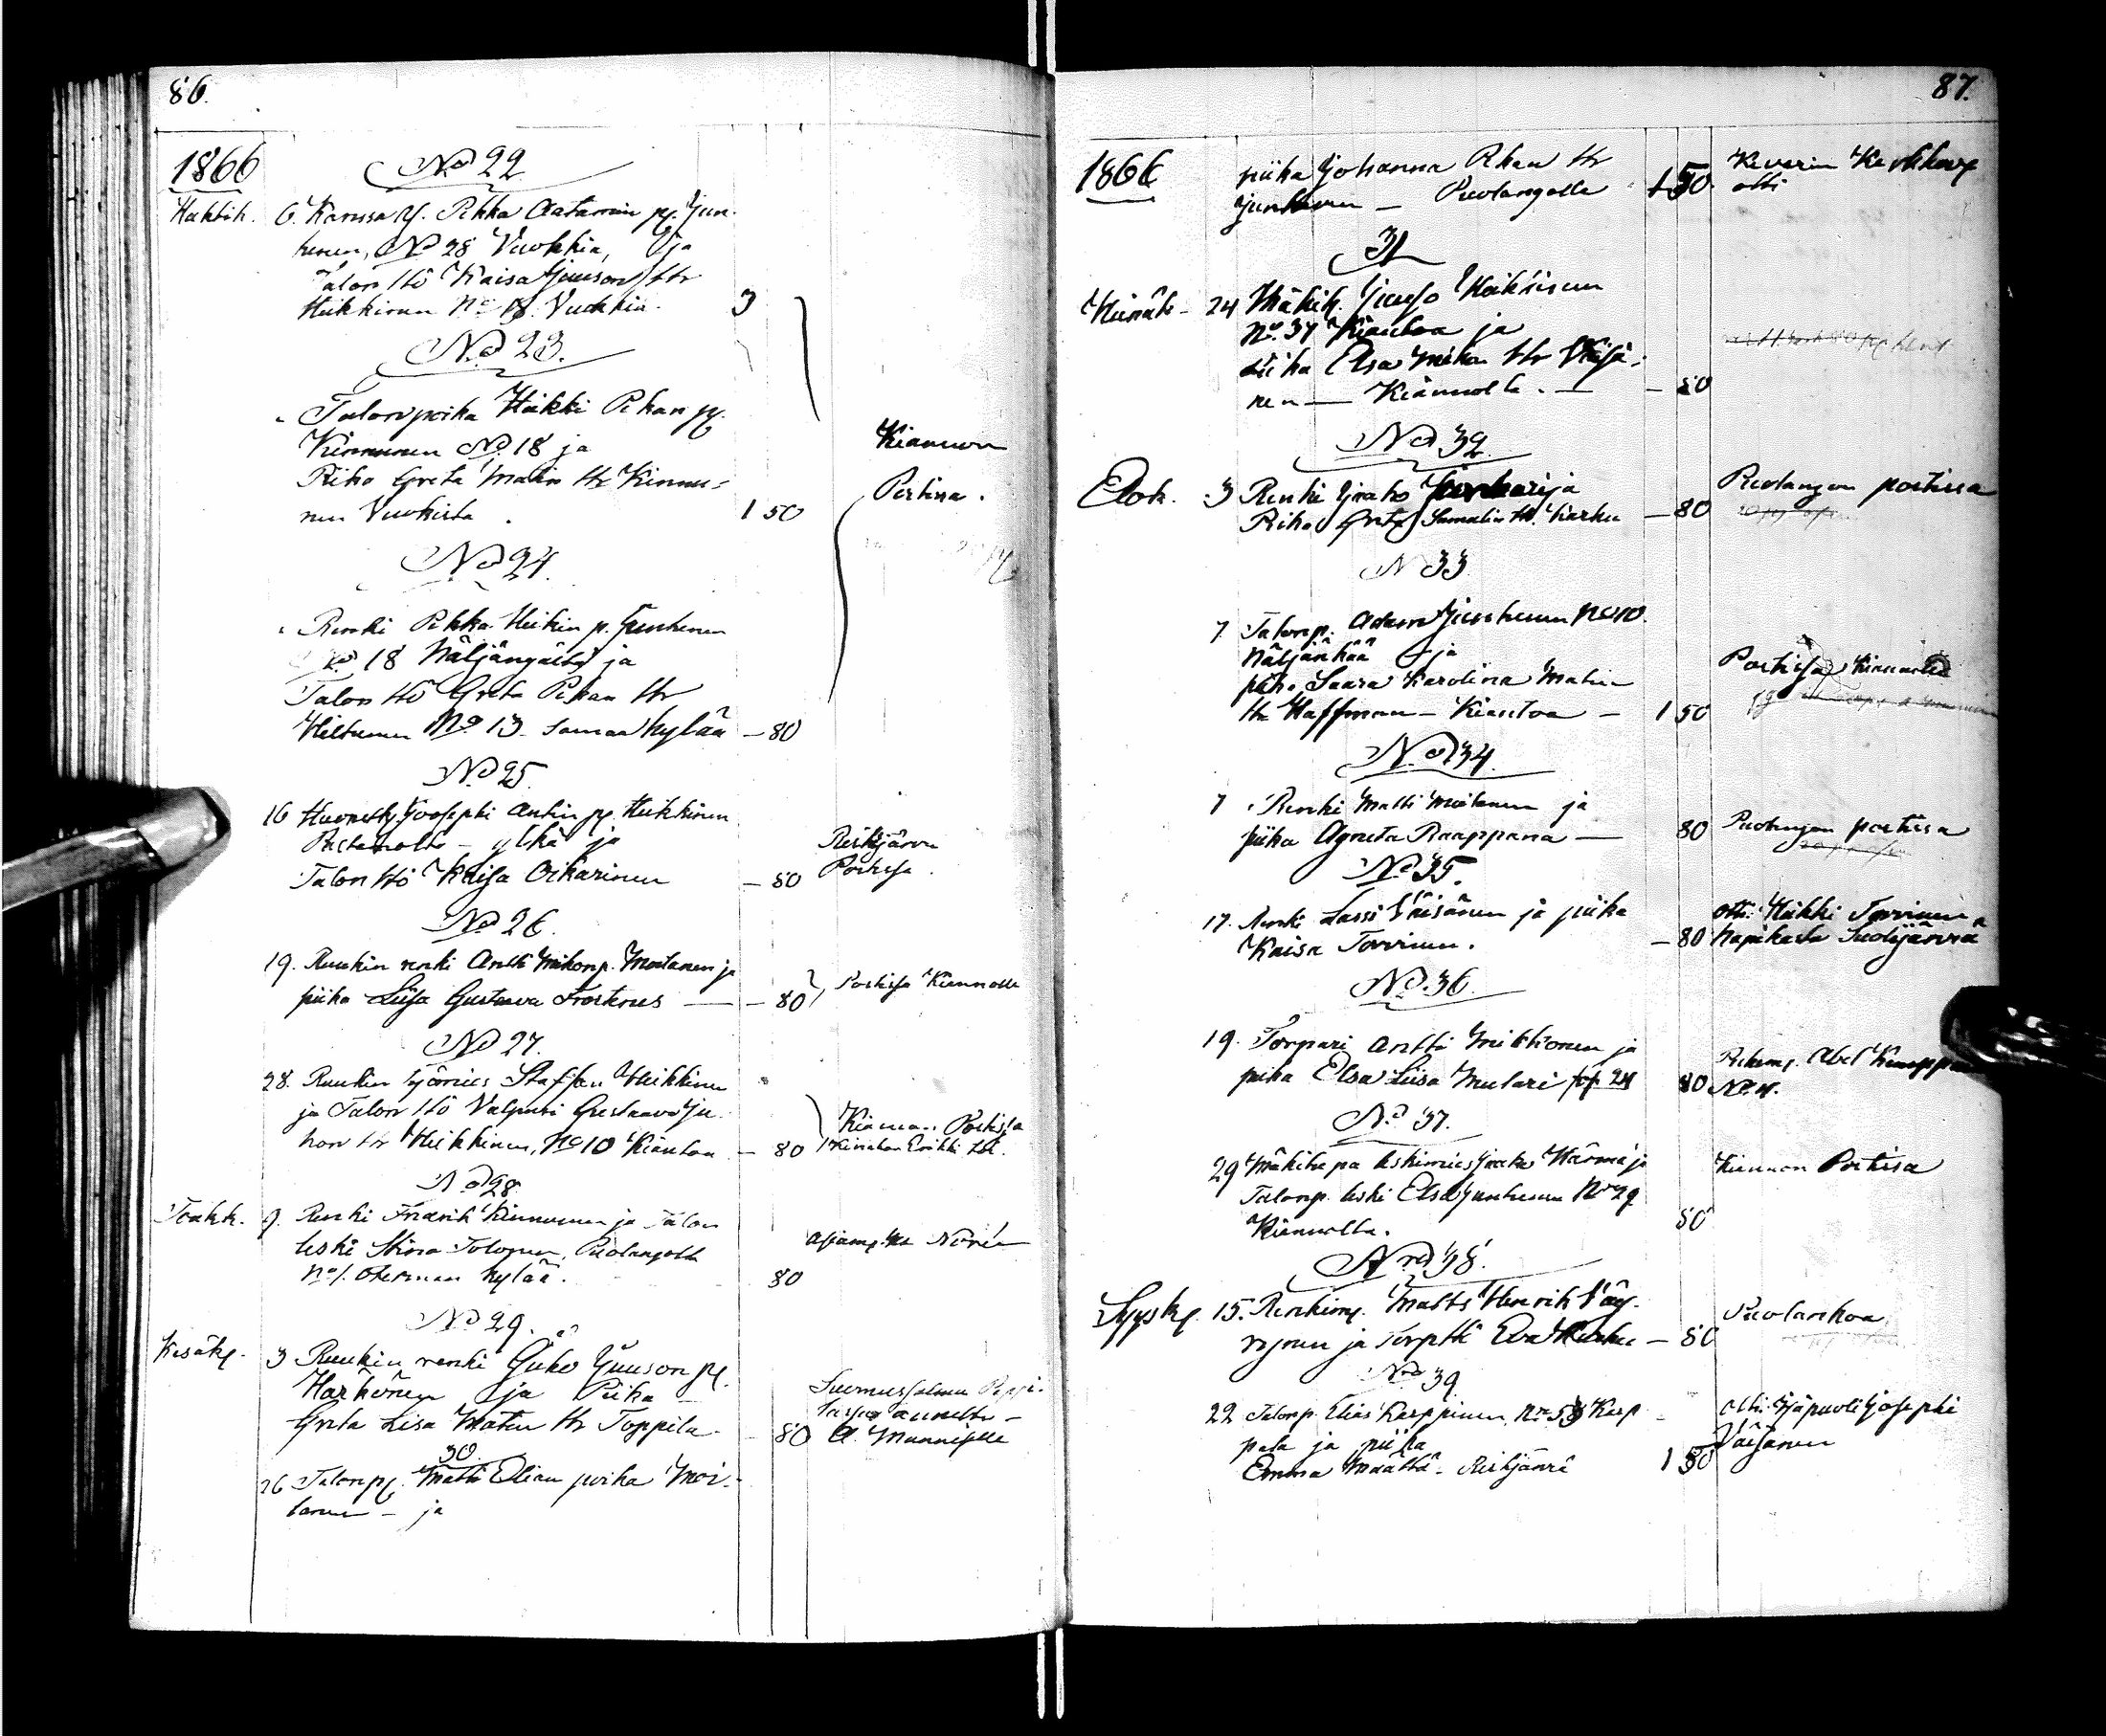 86.
1866
No 22
Huhtik. 6. Karussa y. Pekka Aatamin p. Jun-
tunen, No 28 Vuokkia, ja
Talon ttö Kaisa Juuson ttr
Heikkinen No 18. Vuokkia. 3
No 23.
Talonpoika Heikki Pekan p.
Kinnunen No 18 ja
Piika Greta Matin ttr Kinnu-
nen Vuokista. 1 50
Kiannon
Postissa.
No 24.
Renki Pekka Heikin p. Juntunen
No 18 Näljängältä ja
Talon ttö Greta Pekan ttr
Heltunen No 13 samaa kylää – 80
No 25.
16 Joosephi Antin p. Heikkinen
– ylkä ja
Talon ttö Kaisa Oikarinen – 80
Ristijärven
Postissa.
No 26.
19. Ruukin renki Antti Mikonp. Moilanen ja
piika Liisa Gustava Frosterus – 80
Postissa Kiannolle
No 27.
28. Ruukin työmies Staffan Heikkinen
ja Talon ttö Valpuri Gustaava Ju-
hon ttr Heikkinen, No 10 Kiantoa – 80
Kiannan Postissa
No 28.
Toukk. 9. Renki Fredrik Kinnunen ja Talon
leski Stina Tolonen, Puolangolta
No 1. kylää. 80
Norén
No 29.
Kesäk. 3 Ruukin renki Juho Juuson p.
Härkönen ja Piika
Greta Lisa Matin ttr Toppila. – 80
Suomussalmen
annettu –
A. Manniselle
30.
26 Talonp. Matti Elian poika Moi-
lanen – ja
87.
1866
piika Johanna Pekan ttr
Juntunen – Puolangolla 1 50
Keverin
otti
31
Heinäk – 24 Mäkit. Juuso Heikkinen
No. 37 Kiantoa ja
Piika Elsa Mikon ttr Väisä-
nen – Kiannolla. – – 80
No 32.
Elok. 3 Renki Jaako ja
Piika Greta Samulin ttr. Karhu – 80
Puolangon postissa
N 33
7. Talonp. Adam Juntunen No 10.
Näljänkää ja
piika Saara Karolina Matin
ttr Haffman – Kiantoa – 1 50
Postissa Kiannolle
No 34.
7 Renki Matti Moilanen ja
piika Agneta Raappana – 80
Puolangon postissa
No 35.
17. Renki Lassi Väisänen ja piika
Kaisa Torvinen. – 80
otti: Heikki Torvinen
Suolijärviä
No. 36.
19. Torpari Antti Mikkonen ja
piika Elsa Liisa Mulari 80
Abel
No. 37.
29 Mäkitupa leskimies Jaako Härmä ja
Talonp. leski Elsa Juntunen No 29
Kiannolla. 80
Kiannon Postissa
No 38.
Syysk. 15. Renkim. Matts Henrik Väy-
rynen ja torptt Eva – 80
Puolankoa
No 39
22 Talonp. Elias Karppinen, No 53 Karp-
pala ja piika
Emma Määttä – Ristijärvi 1 50
otti: Joosephi
Väisänen